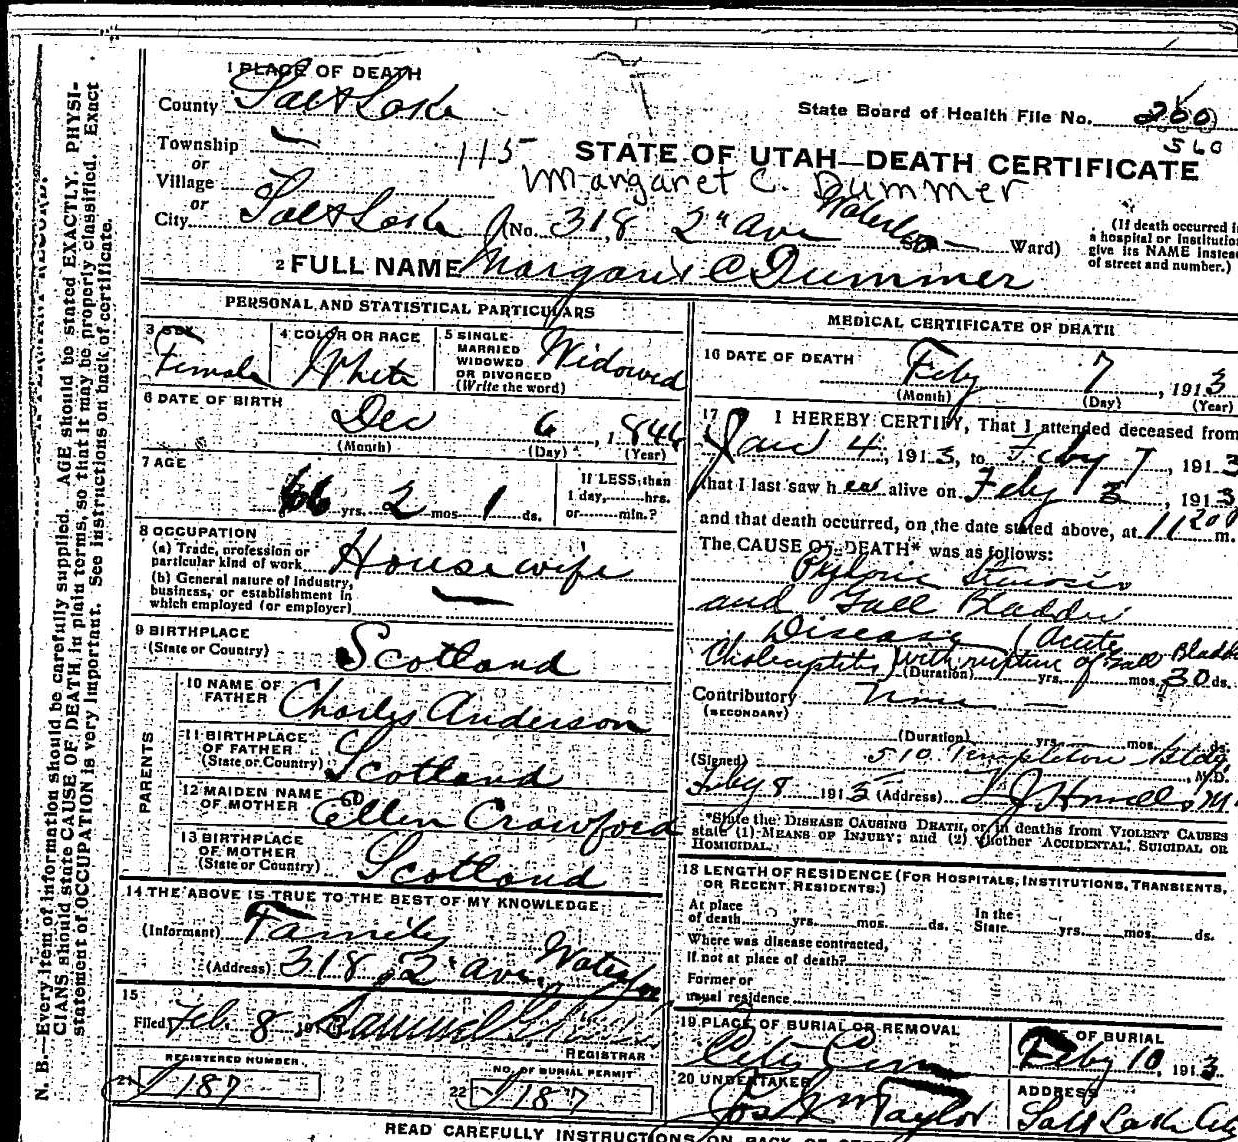 N. B.—Every item of information should be carefully supplied. AGE should be stated EXACTLY. PHYSI-
CIANS should state CAUSE OF DEATH in plain terms, so that it may be properly classified. Exact
statement of OCCUPATION is very important. See instructions on back of certificate.
1 PLACE OF DEATH
County Salt Lake
State Board of Health File No. 260
560
Township
or
Village
or
115
STATE OF UTAH—DEATH CERTIFICATE
Margaret C. Dummer
City Salt Lake (No. 318 2" ave Waterloo Ward)
(If death occurred in
a hospital or institution
give its NAME instead
of street and number.)
2 FULL NAME Margaret C Dummer
PERSONAL AND STATISTICAL PARTICULARS
3 SEX Female
4 COLOR OR RACE White
5 SINGLE
MARRIED
WIDOWED
OR DIVORCED
(Write the word)
Widowed
6 DATE OF BIRTH
Dec 6, 1846
(Month) (Day) (Year)
7 AGE
66 yrs. 2 mos 1 ds.
If LESS than
1 day,......hrs.
or......min.?
8 OCCUPATION
(a) Trade, profession or
particular kind of work
Housewife
(b) General nature of Industry,
business, or establishment in
which employed (or employer)
9 BIRTHPLACE
(State or Country)
Scotland
PARENTS
10 NAME OF
FATHER
Charles Anderson
11 BIRTHPLACE
OF FATHER
(State or Country)
Scotland
12 MAIDEN NAME
OF MOTHER
Ellen Crawford
13 BIRTHPLACE
OF MOTHER
(State or Country)
Scotland
14 THE ABOVE IS TRUE TO THE BEST OF MY KNOWLEDGE
(Informant) Family
(Address) 318 2" ave, Waterloo
15
Filed Feb. 8 191
REGISTRAR
REGISTERED NUMBER
21 187
NO. OF BURIAL PERMIT
22 187
MEDICAL CERTIFICATE OF DEATH
16 DATE OF DEATH
Feby 7, 1913
(Month) (Day) (Year)
17 I HEREBY CERTIFY, That I attended deceased from
Jan 4, 1913, to Feby 7, 1913
that I last saw her alive on Feby 3, 1913
and that death occurred, on the date stated above, at 11 200 m.
The CAUSE OF DEATH* was as follows:
Pyloric Stenosis
and Gall Bladder
Disease (Acute
Cholecystitis) with rupture of Gall Bladder
(Duration) yrs. mos. 30 ds.
Contributory
(SECONDARY)
(Duration) yrs. mos. ds.
510 Templeton Bldg.
(Signed) M.D.
Feby 8 1913 (Address)
*State the DISEASE CAUSING DEATH, or, in deaths from VIOLENT CAUSES
state (1) MEANS OF INJURY; and (2) whether ACCIDENTAL, SUICIDAL OR
HOMICIDAL.
18 LENGTH OF RESIDENCE (FOR HOSPITALS, INSTITUTIONS, TRANSIENTS,
OR RECENT RESIDENTS.)
At place
of death......yrs......mos......ds.
In the
State......yrs......mos......ds.
Where was disease contracted,
If not at place of death?
Former or
usual residence
19 PLACE OF BURIAL OR REMOVAL
City Cem
OF BURIAL
Feby 10, 1913
20 UNDERTAKER
Jos Wm Taylor
ADDRESS
Salt Lake City
READ CAREFULLY INSTRUCTIONS ON BACK OF